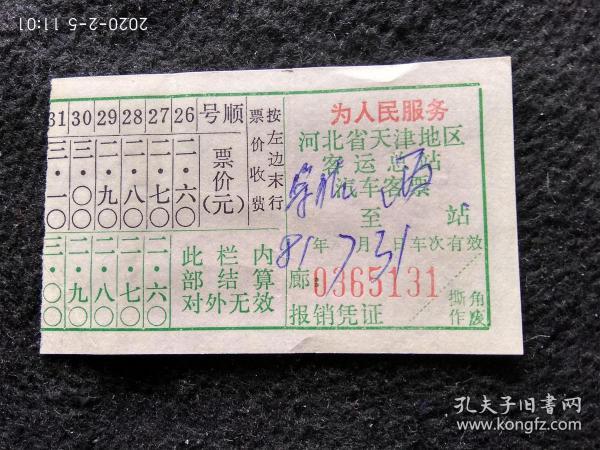 2020-2-5 11:01
为人民服务
河北省天津地区
客运总站
汽车客票
至 站
81年7月31日车次有效
廊 0365131
报销凭证
撕角作废
按左边末行票价收费
顺号 26 27 28 29 30 31
票价(元) 二·六〇 二·七〇 二·八〇 二·九〇 三·〇〇 三·一〇
此栏内
部结算
对外无效
二·六〇 二·七〇 二·八〇 二·九〇 三·〇〇
孔夫子旧书网
www.kongfz.com